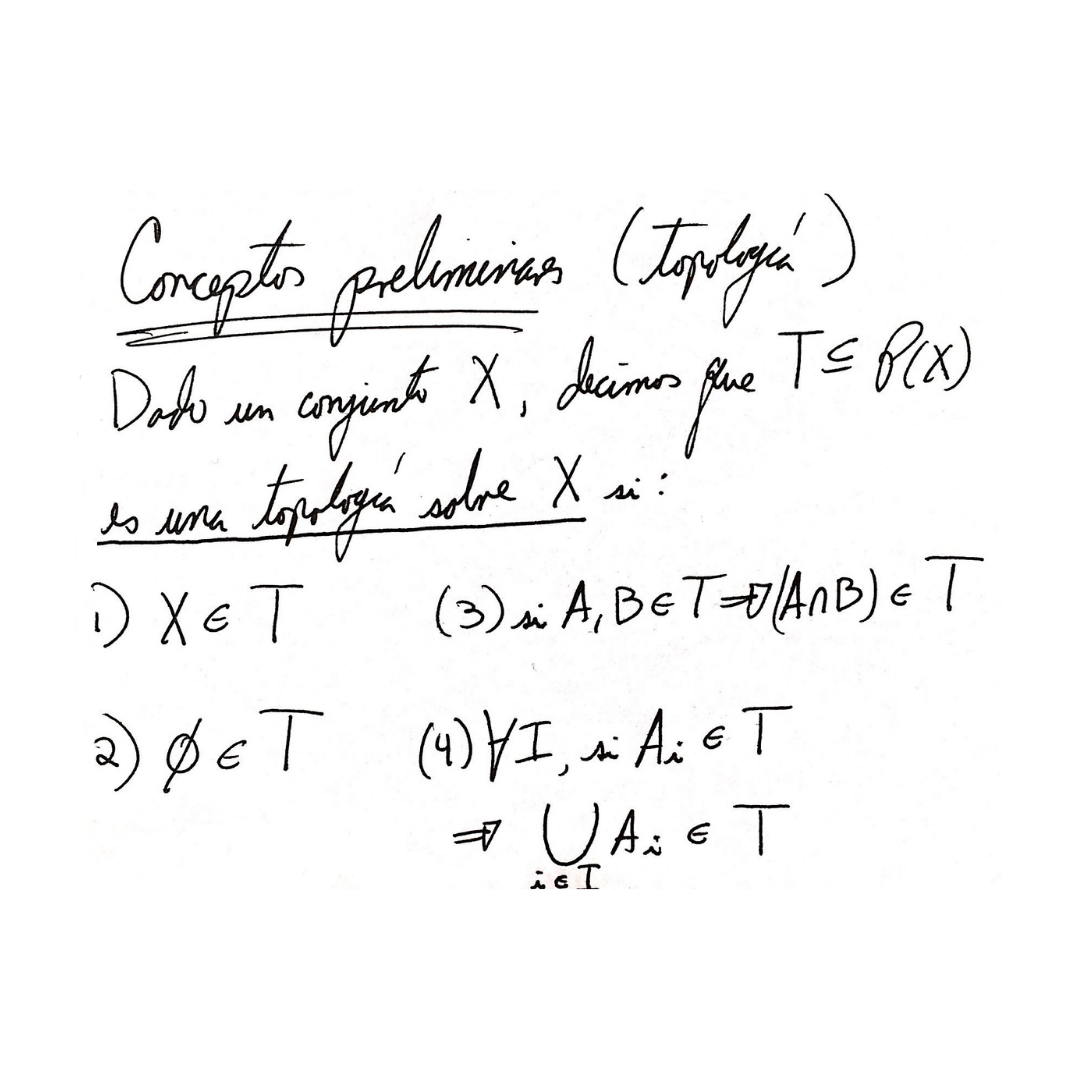 Conceptos preliminares (topología)
Dado un conjunto X, decimos que T ⊆ P(X)
es una topología sobre X si:
1) X ∈ T
(3) si A, B ∈ T ⇒ (A∩B) ∈ T
2) ∅ ∈ T
(4) ∀I, si Aᵢ ∈ T
⇒ ⋃ Aᵢ ∈ T
i ∈ I